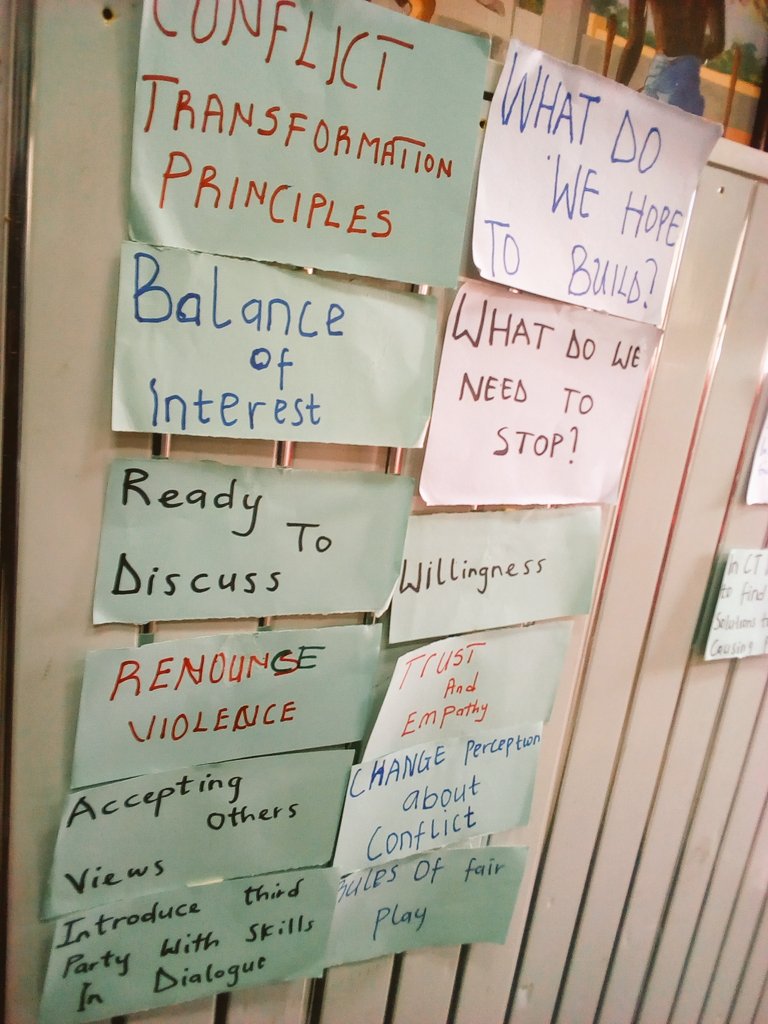 CONFLICT
TRANSFORMATION
PRINCIPLES
Balance
of
Interest
Ready
To
Discuss
RENOUNCE
VIOLENCE
Accepting
others
Views
Introduce third
Party With Skills
In Dialogue
WHAT DO
WE HOPE
TO BUILD?
WHAT DO WE
NEED TO
STOP?
Willingness
TRUST
And
EMPathy
CHANGE Perception
about
Conflict
Rules Of fair
Play
In CT
to find
Solutions
Causing